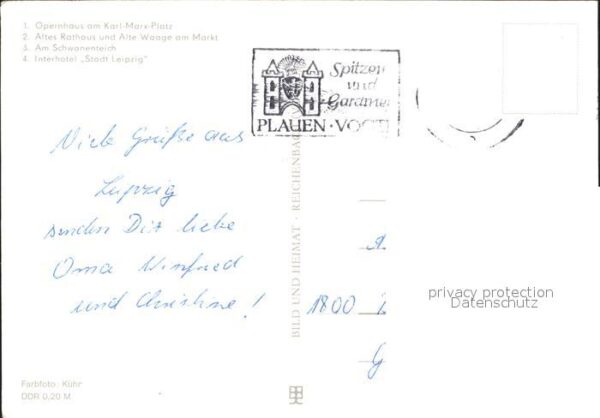 1. Opernhaus am Karl-Marx-Platz
2. Altes Rathaus und Alte Waage am Markt
3. Am Schwanenteich
4. Interhotel „Stadt Leipzig"
Spitzen
und
Gardinen
PLAUEN · VOGT
Viele Grüße aus
Leipzig
senden Dir liebe
Oma Winfried
und Christine!
BILD UND HEIMAT · REICHENBA
A
1800
G
privacy protection
Datenschutz
Farbfoto: Kühn
DDR 0,20 M